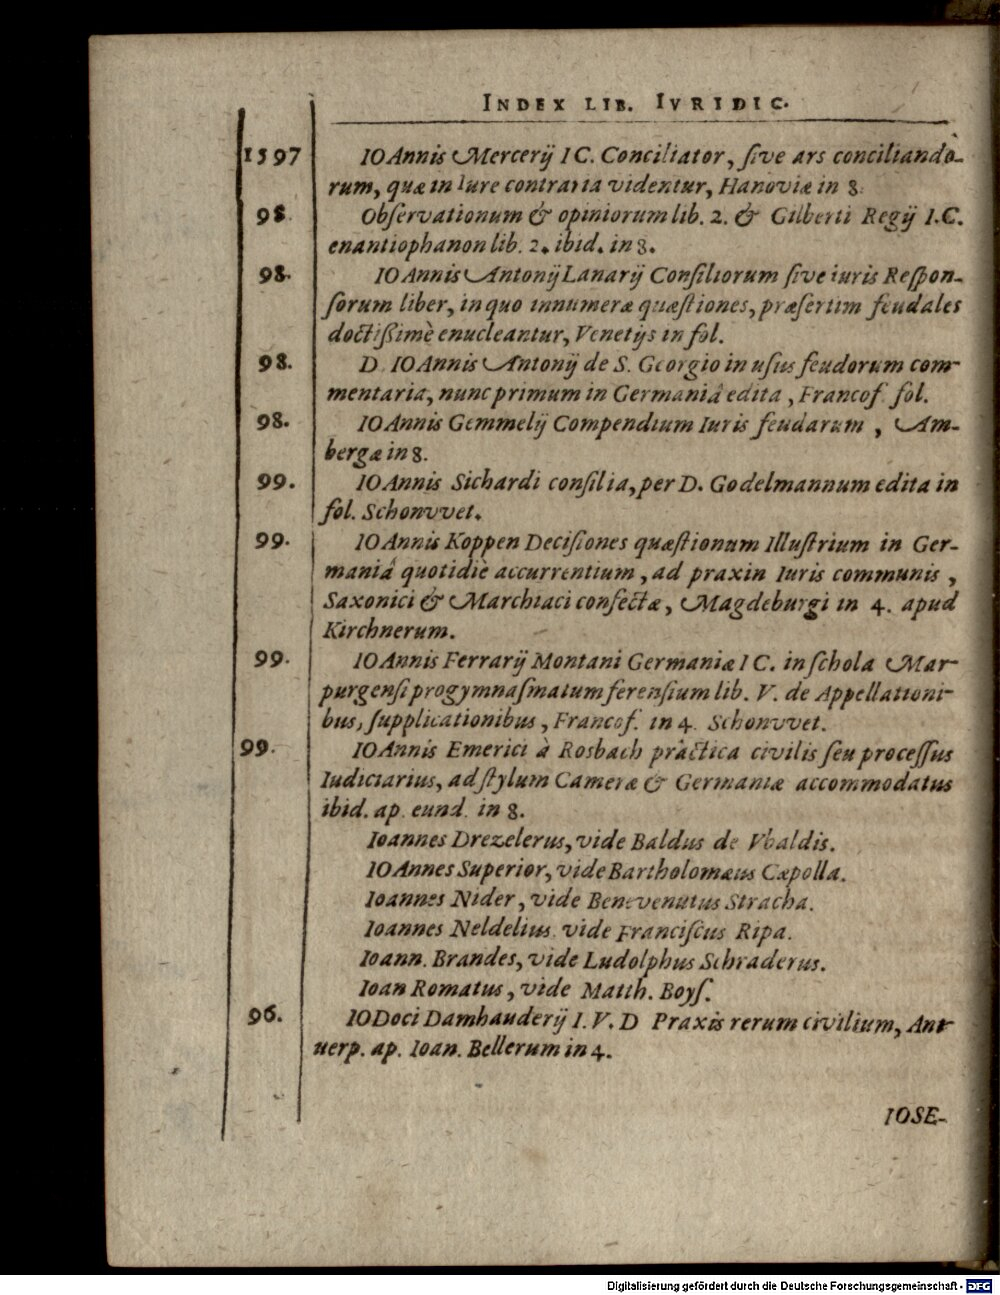 INDEX LIB. IVRIDIC.
1597 IOAnnis Mercerij IC. Conciliator, ſive ars conciliando-
rum, quæ in Iure contraria videntur, Hanoviæ in 8.
98. Obſervationum & opiniorum lib. 2. & Gilberti Regij I.C.
enantiophanon lib. 2. ibid. in 8.
98. IOAnnis Antonij Lanarij Conſiliorum ſive iuris Reſpon-
ſorum liber, in quo innumeræ quæſtiones, præſertim feudales
doctißimè enucleantur, Venetijs in fol.
98. D. IOAnnis Antonij de S. Georgio in uſus feudorum com-
mentaria, nunc primum in Germaniâ edita, Francof. fol.
98. IOAnnis Gemmelij Compendium Iuris feudarum, Am-
bergæ in 8.
99. IOAnnis Sichardi conſilia, per D. Godelmannum edita in
fol. Schonvvet.
99. IOAnnis Koppen Deciſiones quæſtionum Illuſtrium in Ger-
maniâ quotidiè accurrentium, ad praxin Iuris communis,
Saxonici & Marchiaci confectæ, Magdeburgi in 4. apud
Kirchnerum.
99. IOAnnis Ferrarij Montani Germaniæ IC. in ſchola Mar-
purgenſi progymnaſmatum ferenſium lib. V. de Appellationi-
bus, ſupplicationibus, Francof. in 4. Schonvvet.
99. IOAnnis Emerici à Rosbach practica civilis ſeu proceſſus
Iudiciarius, ad ſtylum Cameræ & Germaniæ accommodatus
ibid. ap. eund. in 8.
Ioannes Drezelerus, vide Baldus de Vbaldis.
IOAnnes Superior, vide Bartholomæus Cæpolla.
Ioannes Nider, vide Benevenutus Stracha.
Ioannes Neldelius. vide Franciſcus Ripa.
Ioann. Brandes, vide Ludolphus Schraderus.
Ioan Romatus, vide Matth. Boyſ.
96. IODoci Damhauderij I.V.D Praxis rerum civilium, Ant-
uerp. ap. Ioan. Bellerum in 4.
IOSE-
Digitalisierung gefördert durch die Deutsche Forschungsgemeinschaft - DFG